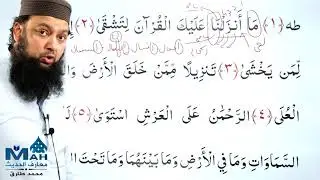 طه ﴿١﴾ مَا أَنزَلْنَا عَلَيْكَ الْقُرْآنَ لِتَشْقَى ﴿٢﴾
لِّمَن يَخْشَى ﴿٣﴾ تَنزِيلًا مِّمَّنْ خَلَقَ الْأَرْضَ وَا
الْعُلَى ﴿٤﴾ الرَّحْمَنُ عَلَى الْعَرْشِ اسْتَوَى ﴿٥﴾ لَهُ
السَّمَاوَاتِ وَمَا فِي الْأَرْضِ وَمَا بَيْنَهُمَا وَمَا تَحْتَ ال
MAH
معارف الحديث
محمد طارق